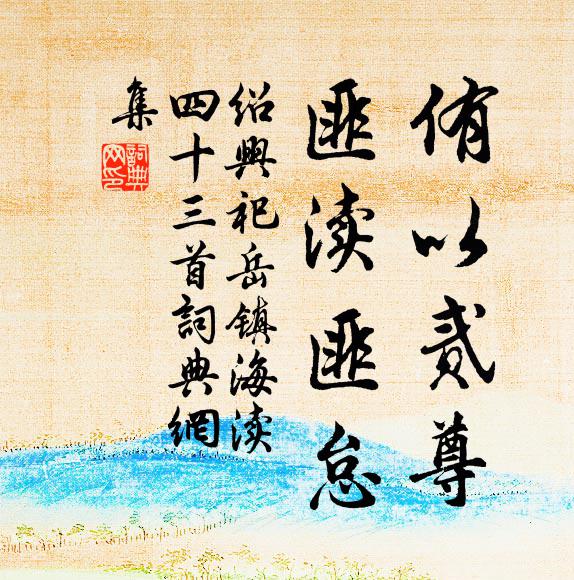 侑以贰尊
匪渎匪怠
绍興祀岳镇海渎
四十三首詞典網
集
詞典網印